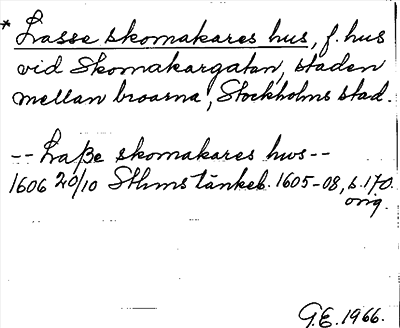 * Lasse skomakares hus, f. hus
vid Skomakargatan, staden
mellan broarna, Stockholms stad.
-- Laße skomakares hws --
1606 20/10 Sthms tänkeb. 1605-08, s. 170.
orig.
G.E. 1966.